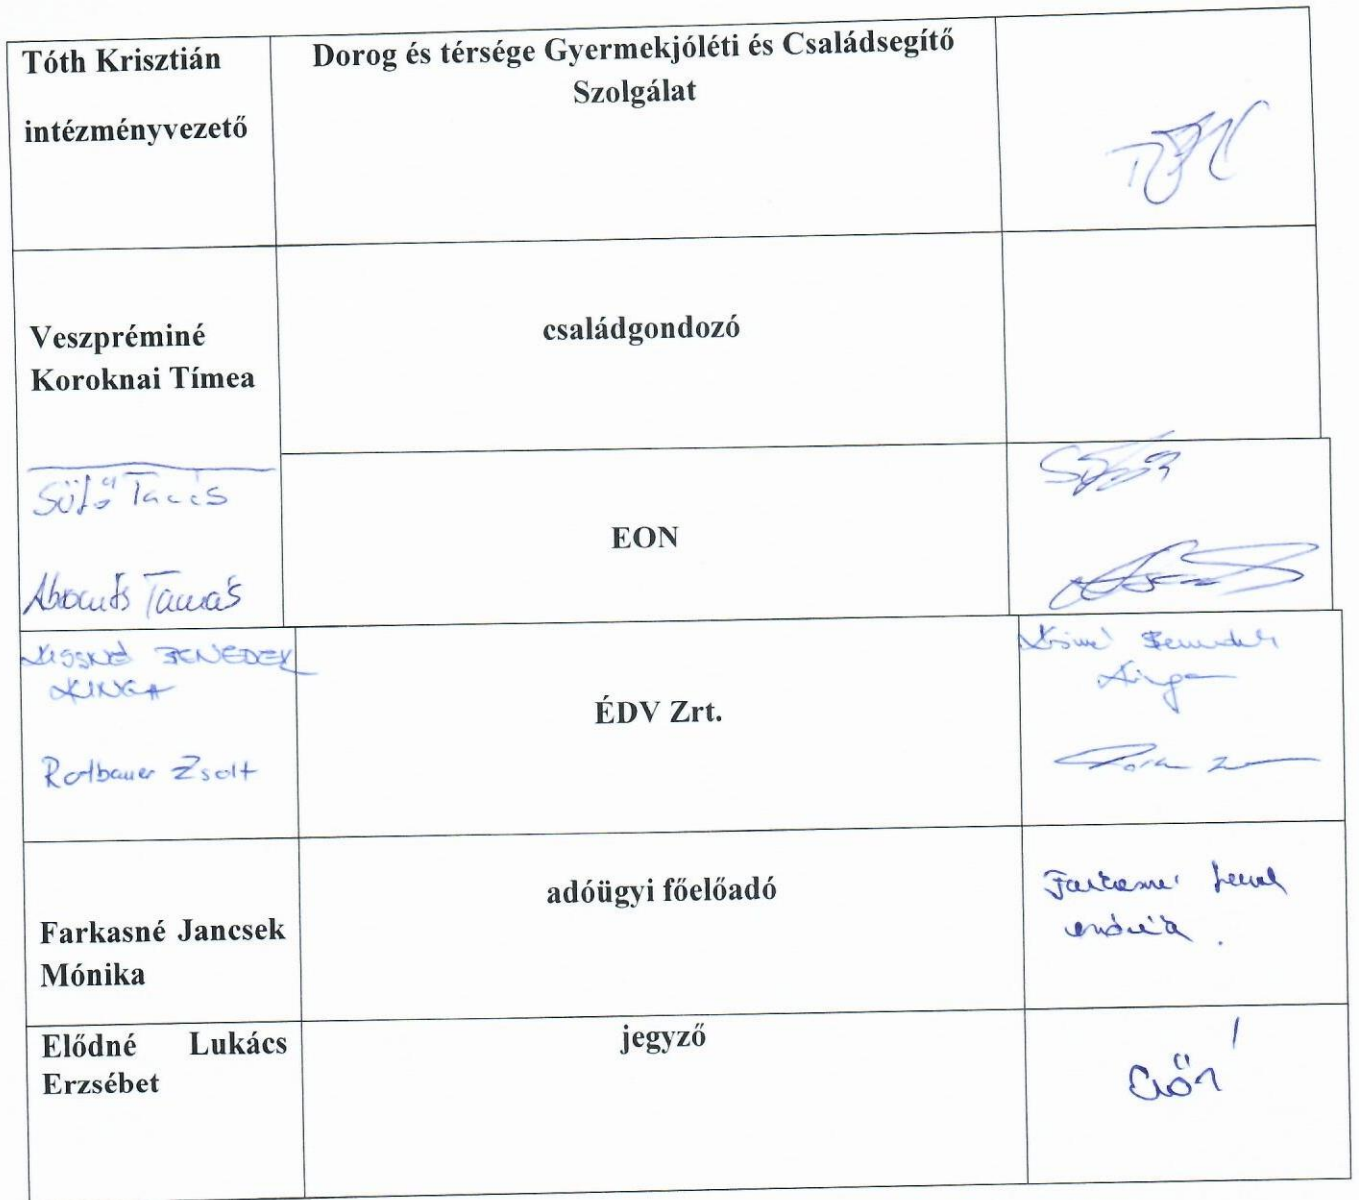 Tóth Krisztián
intézményvezető
Dorog és térsége Gyermekjóléti és Családsegítő
Szolgálat
Veszpréminé
Koroknai Tímea
családgondozó
Tamás
EON
KISSNÉ BENEDEK
KINGA
ÉDV Zrt.
Kissné Benedek
Kinga
Rotbauer Zsolt
Farkasné Jancsek
Mónika
adóügyi főelőadó
Farkasné
Elődné Lukács
Erzsébet
jegyző